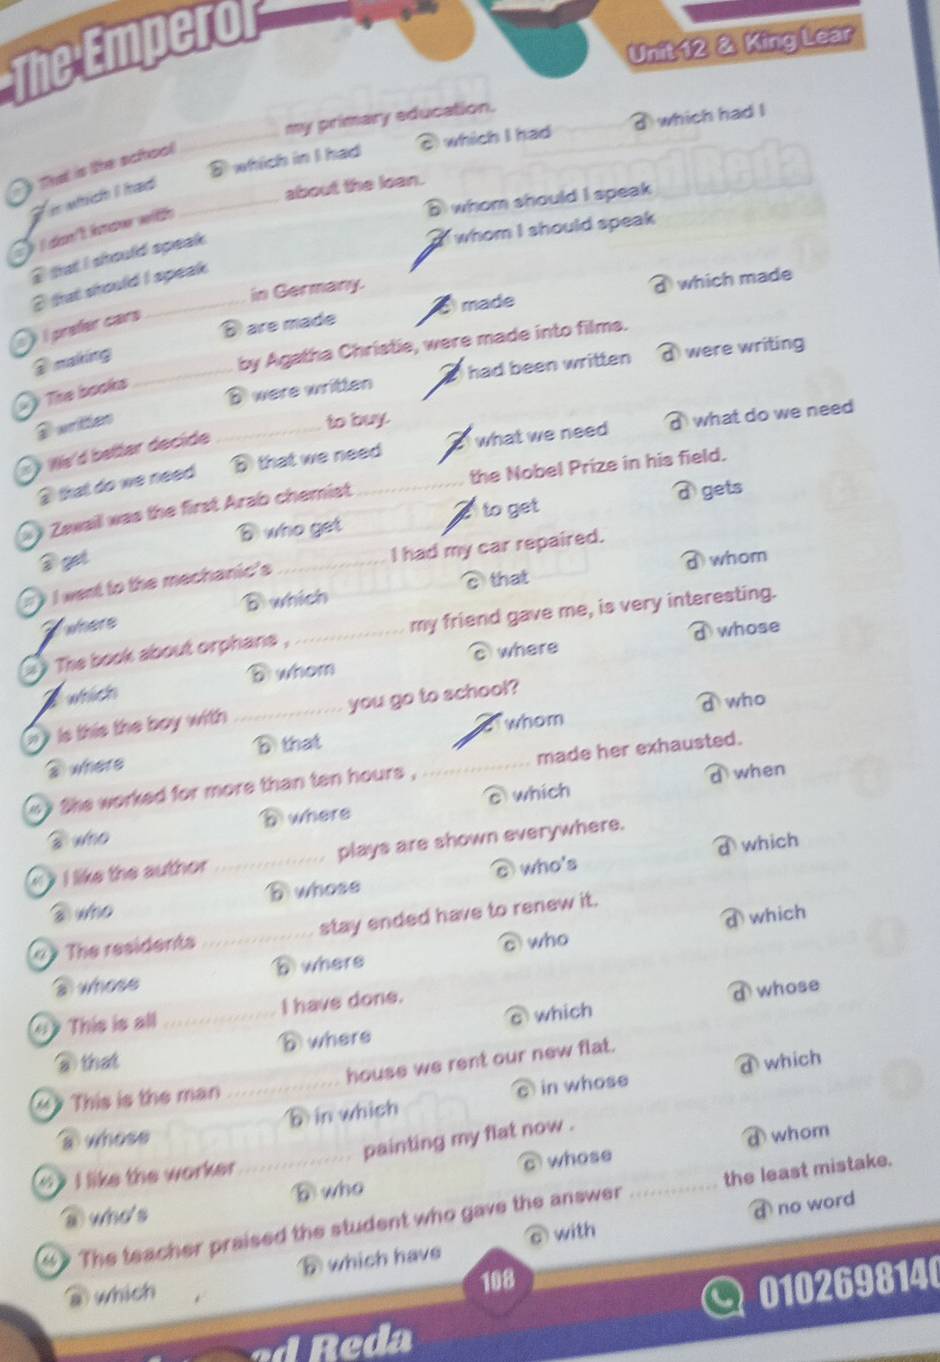 The Emperor
Unit 12 & King Lear
That is the school ............ my primary education.
a in which I had b which in I had c which I had d which had I
I don't know with ............ about the loan.
a that I should speak b whom should I speak
c that should I speak d whom I should speak
I prefer cars ............ in Germany.
a making b are made c made d which made
The books ............ by Agatha Christie, were made into films.
a written b were written c had been written d were writing
We'd better decide ............ to buy.
a that do we need b that we need c what we need d what do we need
Zewail was the first Arab chemist ............ the Nobel Prize in his field.
a get b who get c to get d gets
I went to the mechanic's ............ I had my car repaired.
a where b which c that d whom
The book about orphans , ............ my friend gave me, is very interesting.
a which b whom c where d whose
Is this the boy with ............ you go to school?
a where b that c whom d who
She worked for more than ten hours , ............ made her exhausted.
a who b where c which d when
I like the author ............ plays are shown everywhere.
a who b whose c who's d which
The residents ............ stay ended have to renew it.
a whose b where c who d which
This is all ............ I have done.
a that b where c which d whose
44 This is the man ............ house we rent our new flat.
a whose b in which c in whose d which
45 I like the worker ............ painting my flat now .
a who's b who c whose d whom
46 The teacher praised the student who gave the answer ............ the least mistake.
a which b which have c with d no word
108
0102698140
Reda